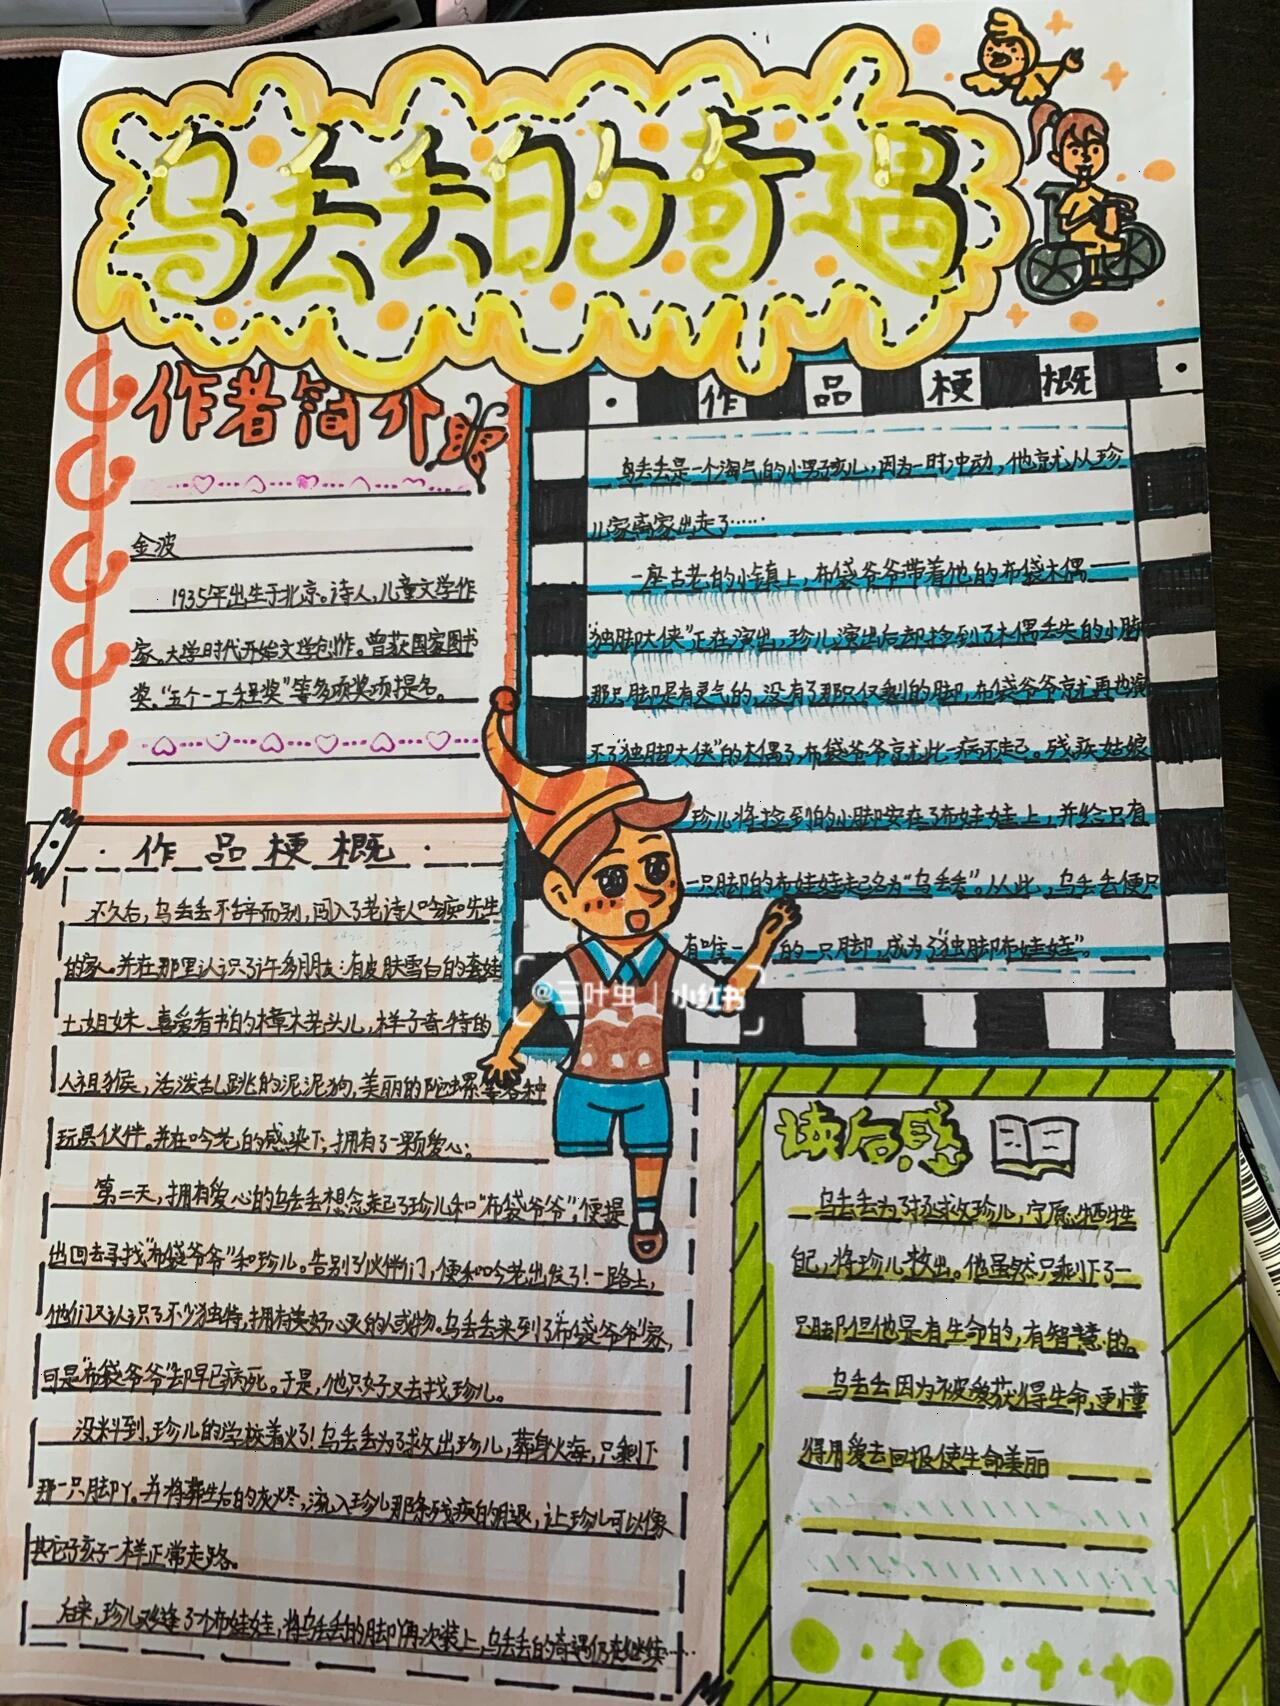 乌丢丢的奇遇
作者简介
金波
1935年出生于北京。诗人,儿童文学作
家。大学时代开始文学创作。曾获国家图书
奖。“五个一工程奖”等多项奖项提名。
作品梗概
乌丢丢是一个淘气的小男孩儿,因为一时冲动,他就从珍
儿家离家出走了……
一座古老的小镇上,布袋爷爷带着他的布袋木偶——
“独脚大侠”正在演出,珍儿演出后却捡到了木偶丢失的小脚
那只脚是有灵气的,没有了那只仅剩的脚,布袋爷爷就再也演
不了“独脚大侠”的木偶了,布袋爷爷就此一病不起。残疾姑娘
珍儿将捡到的小脚安在了布娃娃上,并给只有
一只脚的布娃娃起名为“乌丢丢”。从此,乌丢丢便只
有唯一的一只脚,成为了“独脚布娃娃”。
作品梗概
不久后,乌丢丢不辞而别,闯入了老诗人吟痴先生
的家。并在那里认识了许多朋友:有皮肤雪白的套娃
七姐妹 喜爱看书的樟木老头儿,样子奇特的
人祖猴,活泼乱跳的泥泥狗,美丽的陀螺等各种
玩具伙伴。并在吟老的感染下,拥有了一颗爱心;
第二天,拥有爱心的乌丢丢想念起了珍儿和“布袋爷爷”,便提
出回去寻找“布袋爷爷”和珍儿。告别了伙伴们,便和吟老出发了!一路上,
他们又认识了不少独特,拥有美好心灵的人或物。乌丢丢来到了“布袋爷爷”家,
可是“布袋爷爷”却早已病死。于是,他只好又去找珍儿。
没料到,珍儿的学校着火了!乌丢丢为了救出珍儿,葬身火海,只剩下
那一只脚丫。并将葬生后的灰烬,流入珍儿那条残疾的腿,让珍儿可以像
其它孩子一样正常走路。
后来,珍儿又缝了个布娃娃,将乌丢丢的脚丫再次装上,乌丢丢的奇遇仍在继续……
@三叶虫 | 小红书
读后感
乌丢丢为了拯救珍儿,宁愿牺牲
自己,将珍儿救出。他虽然只剩下了一
只脚,但他是有生命的,有智慧的。
乌丢丢因为被爱获得生命,更懂
得用爱去回报使生命美丽